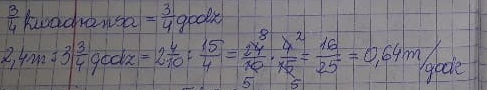 3/4 kwadransa = 3/4 godz
2,4m : 3 3/4 godz = 2 4/10 : 15/4 = 24/10 8 5 · 4/15 2 5 = 16/25 = 0,64 m/godz